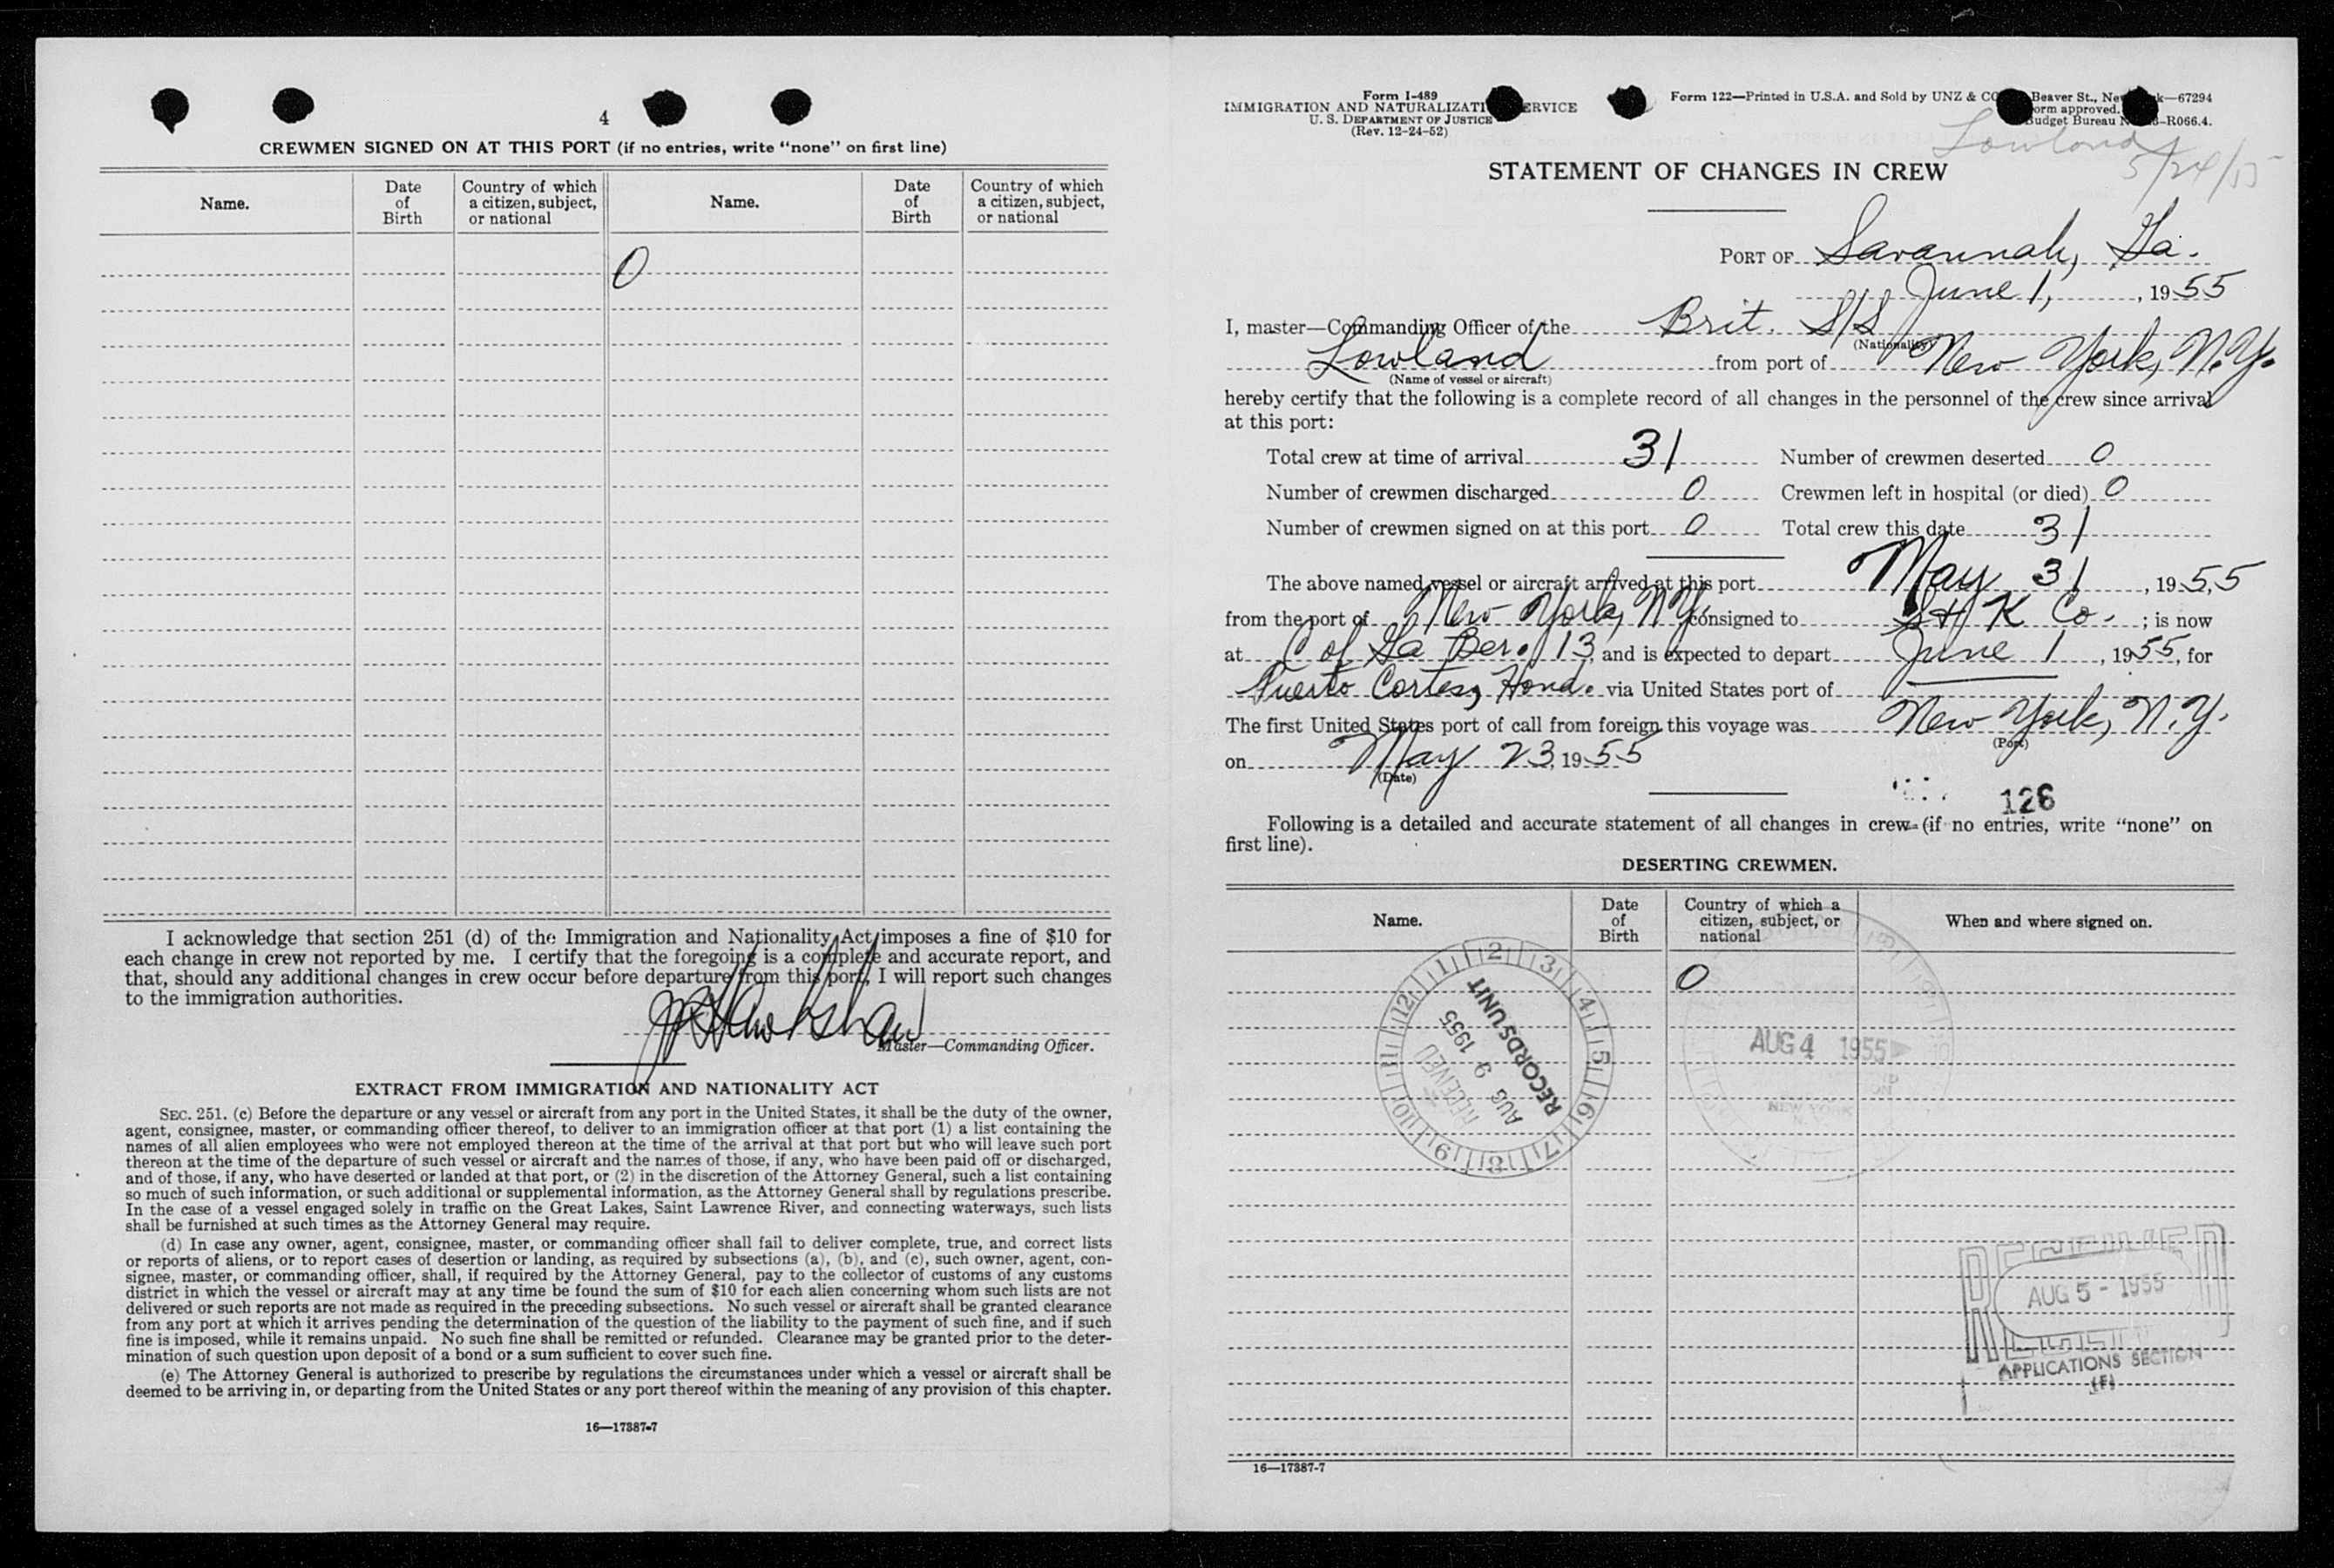 4
CREWMEN SIGNED ON AT THIS PORT (if no entries, write “none” on first line)
Name. Date of Birth Country of which a citizen, subject, or national Name. Date of Birth Country of which a citizen, subject, or national
0
I acknowledge that section 251 (d) of the Immigration and Nationality Act imposes a fine of $10 for
each change in crew not reported by me. I certify that the foregoing is a complete and accurate report, and
that, should any additional changes in crew occur before departure from this port, I will report such changes
to the immigration authorities.
Hawkshaw
Master—Commanding Officer.
EXTRACT FROM IMMIGRATION AND NATIONALITY ACT
SEC. 251. (c) Before the departure or any vessel or aircraft from any port in the United States, it shall be the duty of the owner,
agent, consignee, master, or commanding officer thereof, to deliver to an immigration officer at that port (1) a list containing the
names of all alien employees who were not employed thereon at the time of the arrival at that port but who will leave such port
thereon at the time of the departure of such vessel or aircraft and the names of those, if any, who have been paid off or discharged,
and of those, if any, who have deserted or landed at that port, or (2) in the discretion of the Attorney General, such a list containing
so much of such information, or such additional or supplemental information, as the Attorney General shall by regulations prescribe.
In the case of a vessel engaged solely in traffic on the Great Lakes, Saint Lawrence River, and connecting waterways, such lists
shall be furnished at such times as the Attorney General may require.
(d) In case any owner, agent, consignee, master, or commanding officer shall fail to deliver complete, true, and correct lists
or reports of aliens, or to report cases of desertion or landing, as required by subsections (a), (b), and (c), such owner, agent, con-
signee, master, or commanding officer, shall, if required by the Attorney General, pay to the collector of customs of any customs
district in which the vessel or aircraft may at any time be found the sum of $10 for each alien concerning whom such lists are not
delivered or such reports are not made as required in the preceding subsections. No such vessel or aircraft shall be granted clearance
from any port at which it arrives pending the determination of the question of the liability to the payment of such fine, and if such
fine is imposed, while it remains unpaid. No such fine shall be remitted or refunded. Clearance may be granted prior to the deter-
mination of such question upon deposit of a bond or a sum sufficient to cover such fine.
(e) The Attorney General is authorized to prescribe by regulations the circumstances under which a vessel or aircraft shall be
deemed to be arriving in, or departing from the United States or any port thereof within the meaning of any provision of this chapter.
16—17387-7
Form I-489
IMMIGRATION AND NATURALIZATI ERVICE
U. S. DEPARTMENT OF JUSTICE
(Rev. 12-24-52)
Form 122—Printed in U.S.A. and Sold by UNZ & CO Beaver St., Ne k—67294
orm approved.
udget Bureau N -R066.4.
Lowland
5/24/55
STATEMENT OF CHANGES IN CREW
PORT OF Savannah, Ga.
June 1, , 1955
I, master—Commanding Officer of the Brit. S/S
(Nationality)
Lowland from port of New York, N.Y.
(Name of vessel or aircraft)
hereby certify that the following is a complete record of all changes in the personnel of the crew since arrival
at this port:
Total crew at time of arrival 31 Number of crewmen deserted 0
Number of crewmen discharged 0 Crewmen left in hospital (or died) 0
Number of crewmen signed on at this port 0 Total crew this date 31
The above named vessel or aircraft arrived at this port May 31 , 1955
from the port of New York, NY consigned to S H K Co. ; is now
at C of Ga Ber. 13, and is expected to depart June 1 , 1955, for
Puerto Cortes, Hond. via United States port of
The first United States port of call from foreign this voyage was New York, N.Y.
(Port)
on May 23, 1955
(Date)
126
Following is a detailed and accurate statement of all changes in crew (if no entries, write “none” on
first line).
DESERTING CREWMEN.
Name. Date of Birth Country of which a citizen, subject, or national When and where signed on.
0
1 2 3 4 5 6 7 8 9 10 11 12
RECORDS UNIT
AUG 9 1955
RECEIVED
AUG 4 1955
NEW YORK
RECEIVED
AUG 5 - 1955
APPLICATIONS SECTION
(F)
16—17387-7